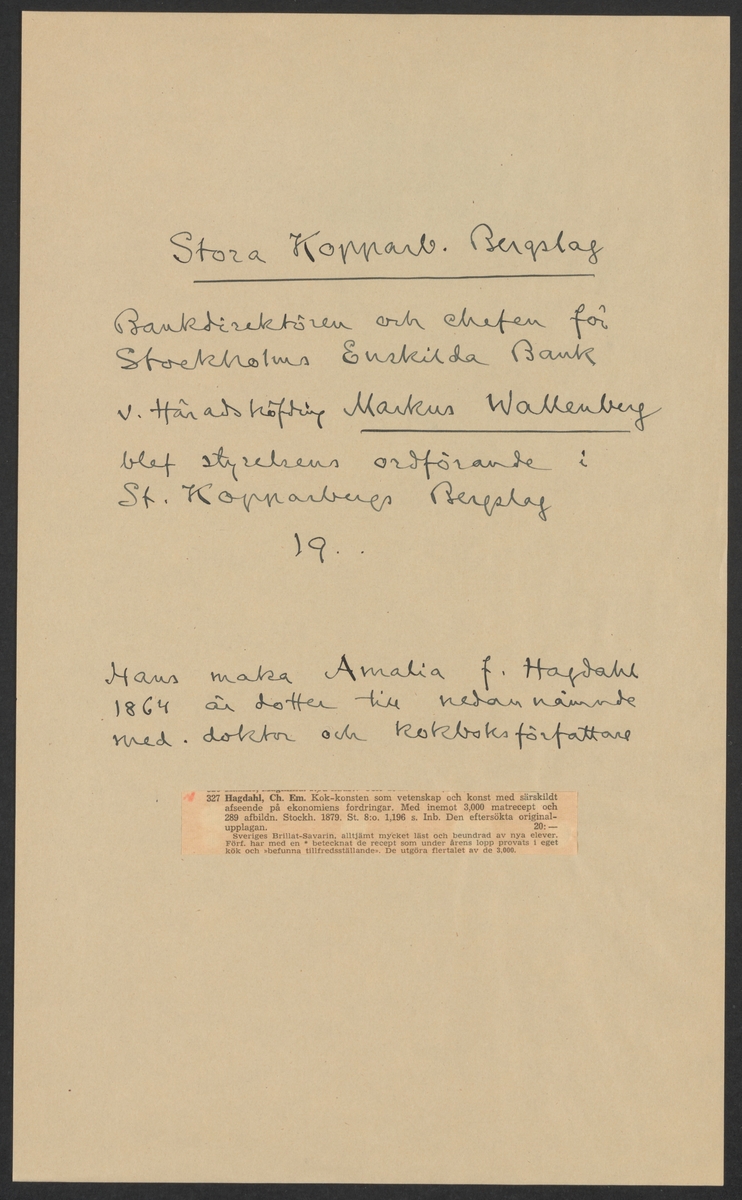 Stora Kopparb. Bergslag
Bankdirektören och chefen för
Stockholms Enskilda Bank
v. Häradshöfding Markus Wallenberg
blef styrelsens ordförande i
St. Kopparbergs Bergslag
19. .
Hans maka Amalia f. Hagdahl
1864 är dotter till nedannämnde
med. doktor och kokboksförfattare
327 Hagdahl, Ch. Em. Kok-konsten som vetenskap och konst med särskildt
afseende på ekonomiens fordringar. Med inemot 3,000 matrecept och
289 afbildn. Stockh. 1879. St. 8:o. 1,196 s. Inb. Den eftersökta original-
upplagan. 20:—
Sveriges Brillat-Savarin, alltjämt mycket läst och beundrad av nya elever.
Förf. har med en * betecknat de recept som under årens lopp provats i eget
kök och »befunna tillfredsställande». De utgöra flertalet av de 3.000.